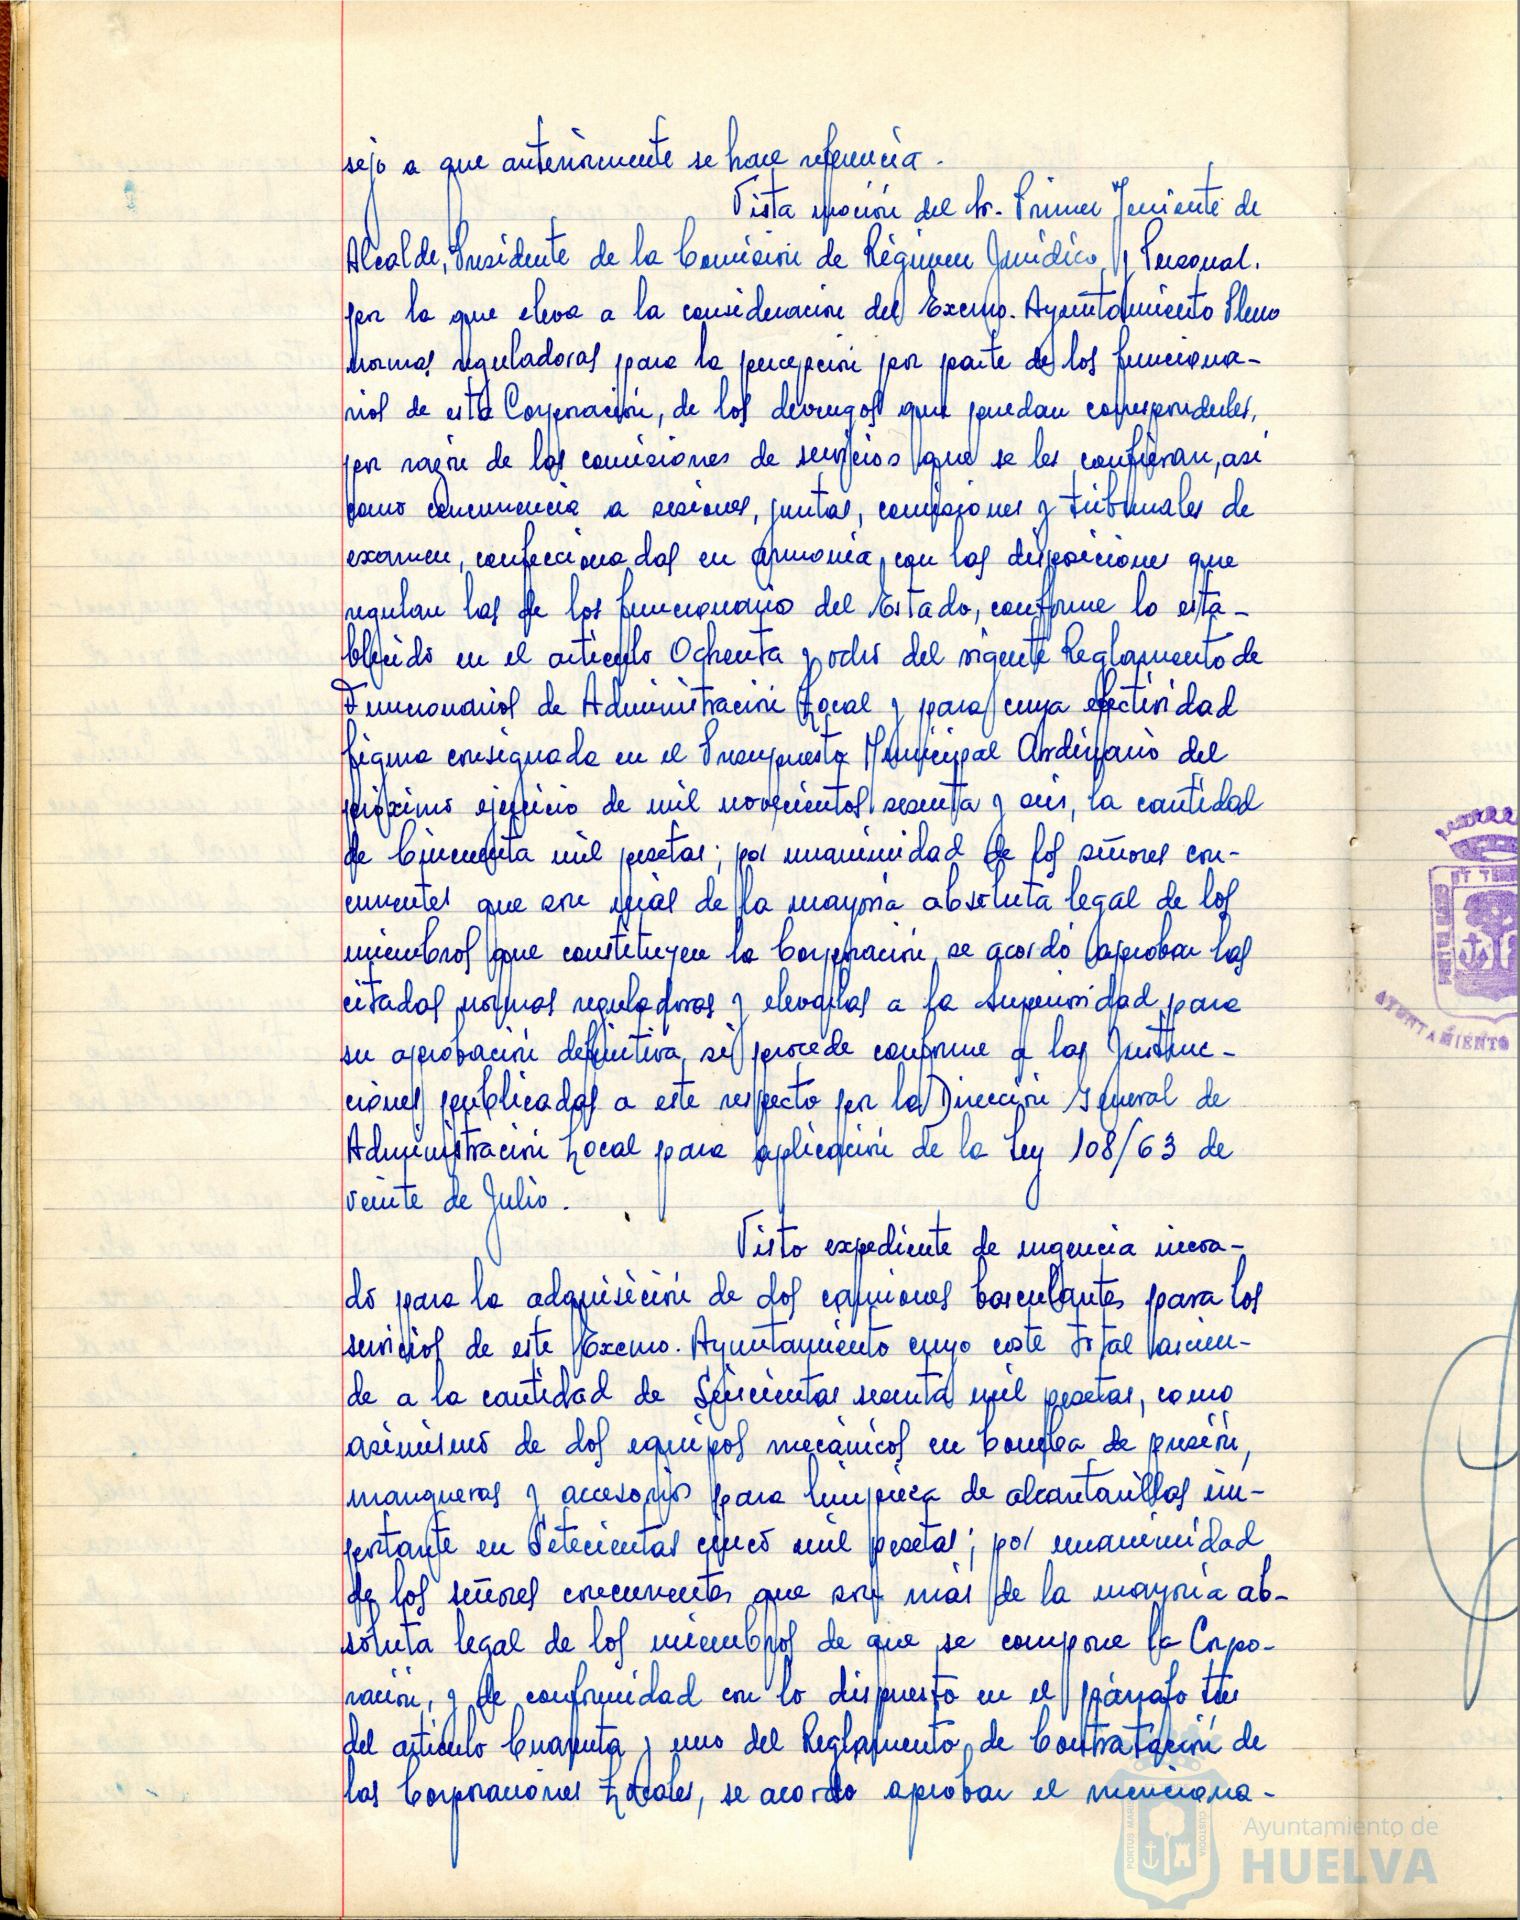 sejo a que anteriormente se hace referencia.
Vista moción del Sr. Primer Teniente de
Alcalde, Presidente de la Comisión de Régimen Jurídico y Personal,
por la que eleva a la consideración del Excmo. Ayuntamiento Pleno
normas reguladoras para la percepción por parte de los funciona-
rios de esta Corporación, de los devengos que puedan corresponderles,
por razón de las comisiones de servicios que se les confieran, asi
como concurrencia a sesiones, juntas, comisiones y tribunales de
examen, confeccionadas en armonía con las disposiciones que
regulan las de los funcionario del Estado, conforme lo esta-
blecido en el artículo Ochenta y ocho del vigente Reglamento de
Funcionarios de Administración Local y para cuya efectividad
figura consignada en el Presupuesto Municipal Ordinario del
próximo ejercicio de mil novecientos sesenta y seis, la cantidad
de Cincuenta mil pesetas; por unanimidad de los señores con-
currentes que son más de la mayoría absoluta legal de los
miembros que constituyen la Corporación, se acordó aprobar las
citadas normas reguladoras y elevarlas a la Superioridad para
su aprobación definitiva, si procede conforme a las Instruc-
ciones publicadas a este respecto por la Dirección General de
Administración Local para aplicación de la Ley 108/63 de
veinte de Julio.
Visto expediente de urgencia incoa-
do para la adquisición de dos camiones basculantes para los
servicios de este Excmo. Ayuntamiento cuyo coste total ascien-
de a la cantidad de Seiscientas sesenta mil pesetas, como
asimismo de dos equipos mecánicos en bomba de presión,
mangueras y accesorios para limpieza de alcantarillas im-
portante en Setecientas cinco mil pesetas; por unanimidad
de los señores concurrentes que son más de la mayoría ab-
soluta legal de los miembros de que se compone la Corpo-
ración, y de conformidad con lo dispuesto en el párrafo tres
del artículo Cuarenta y uno del Reglamento de Contratación de
las Corporaciones Locales, se acordo aprobar el menciona-
AYUNTAMIENTO
PORTUS MARIS
CUSTODIA
Ayuntamiento de
HUELVA